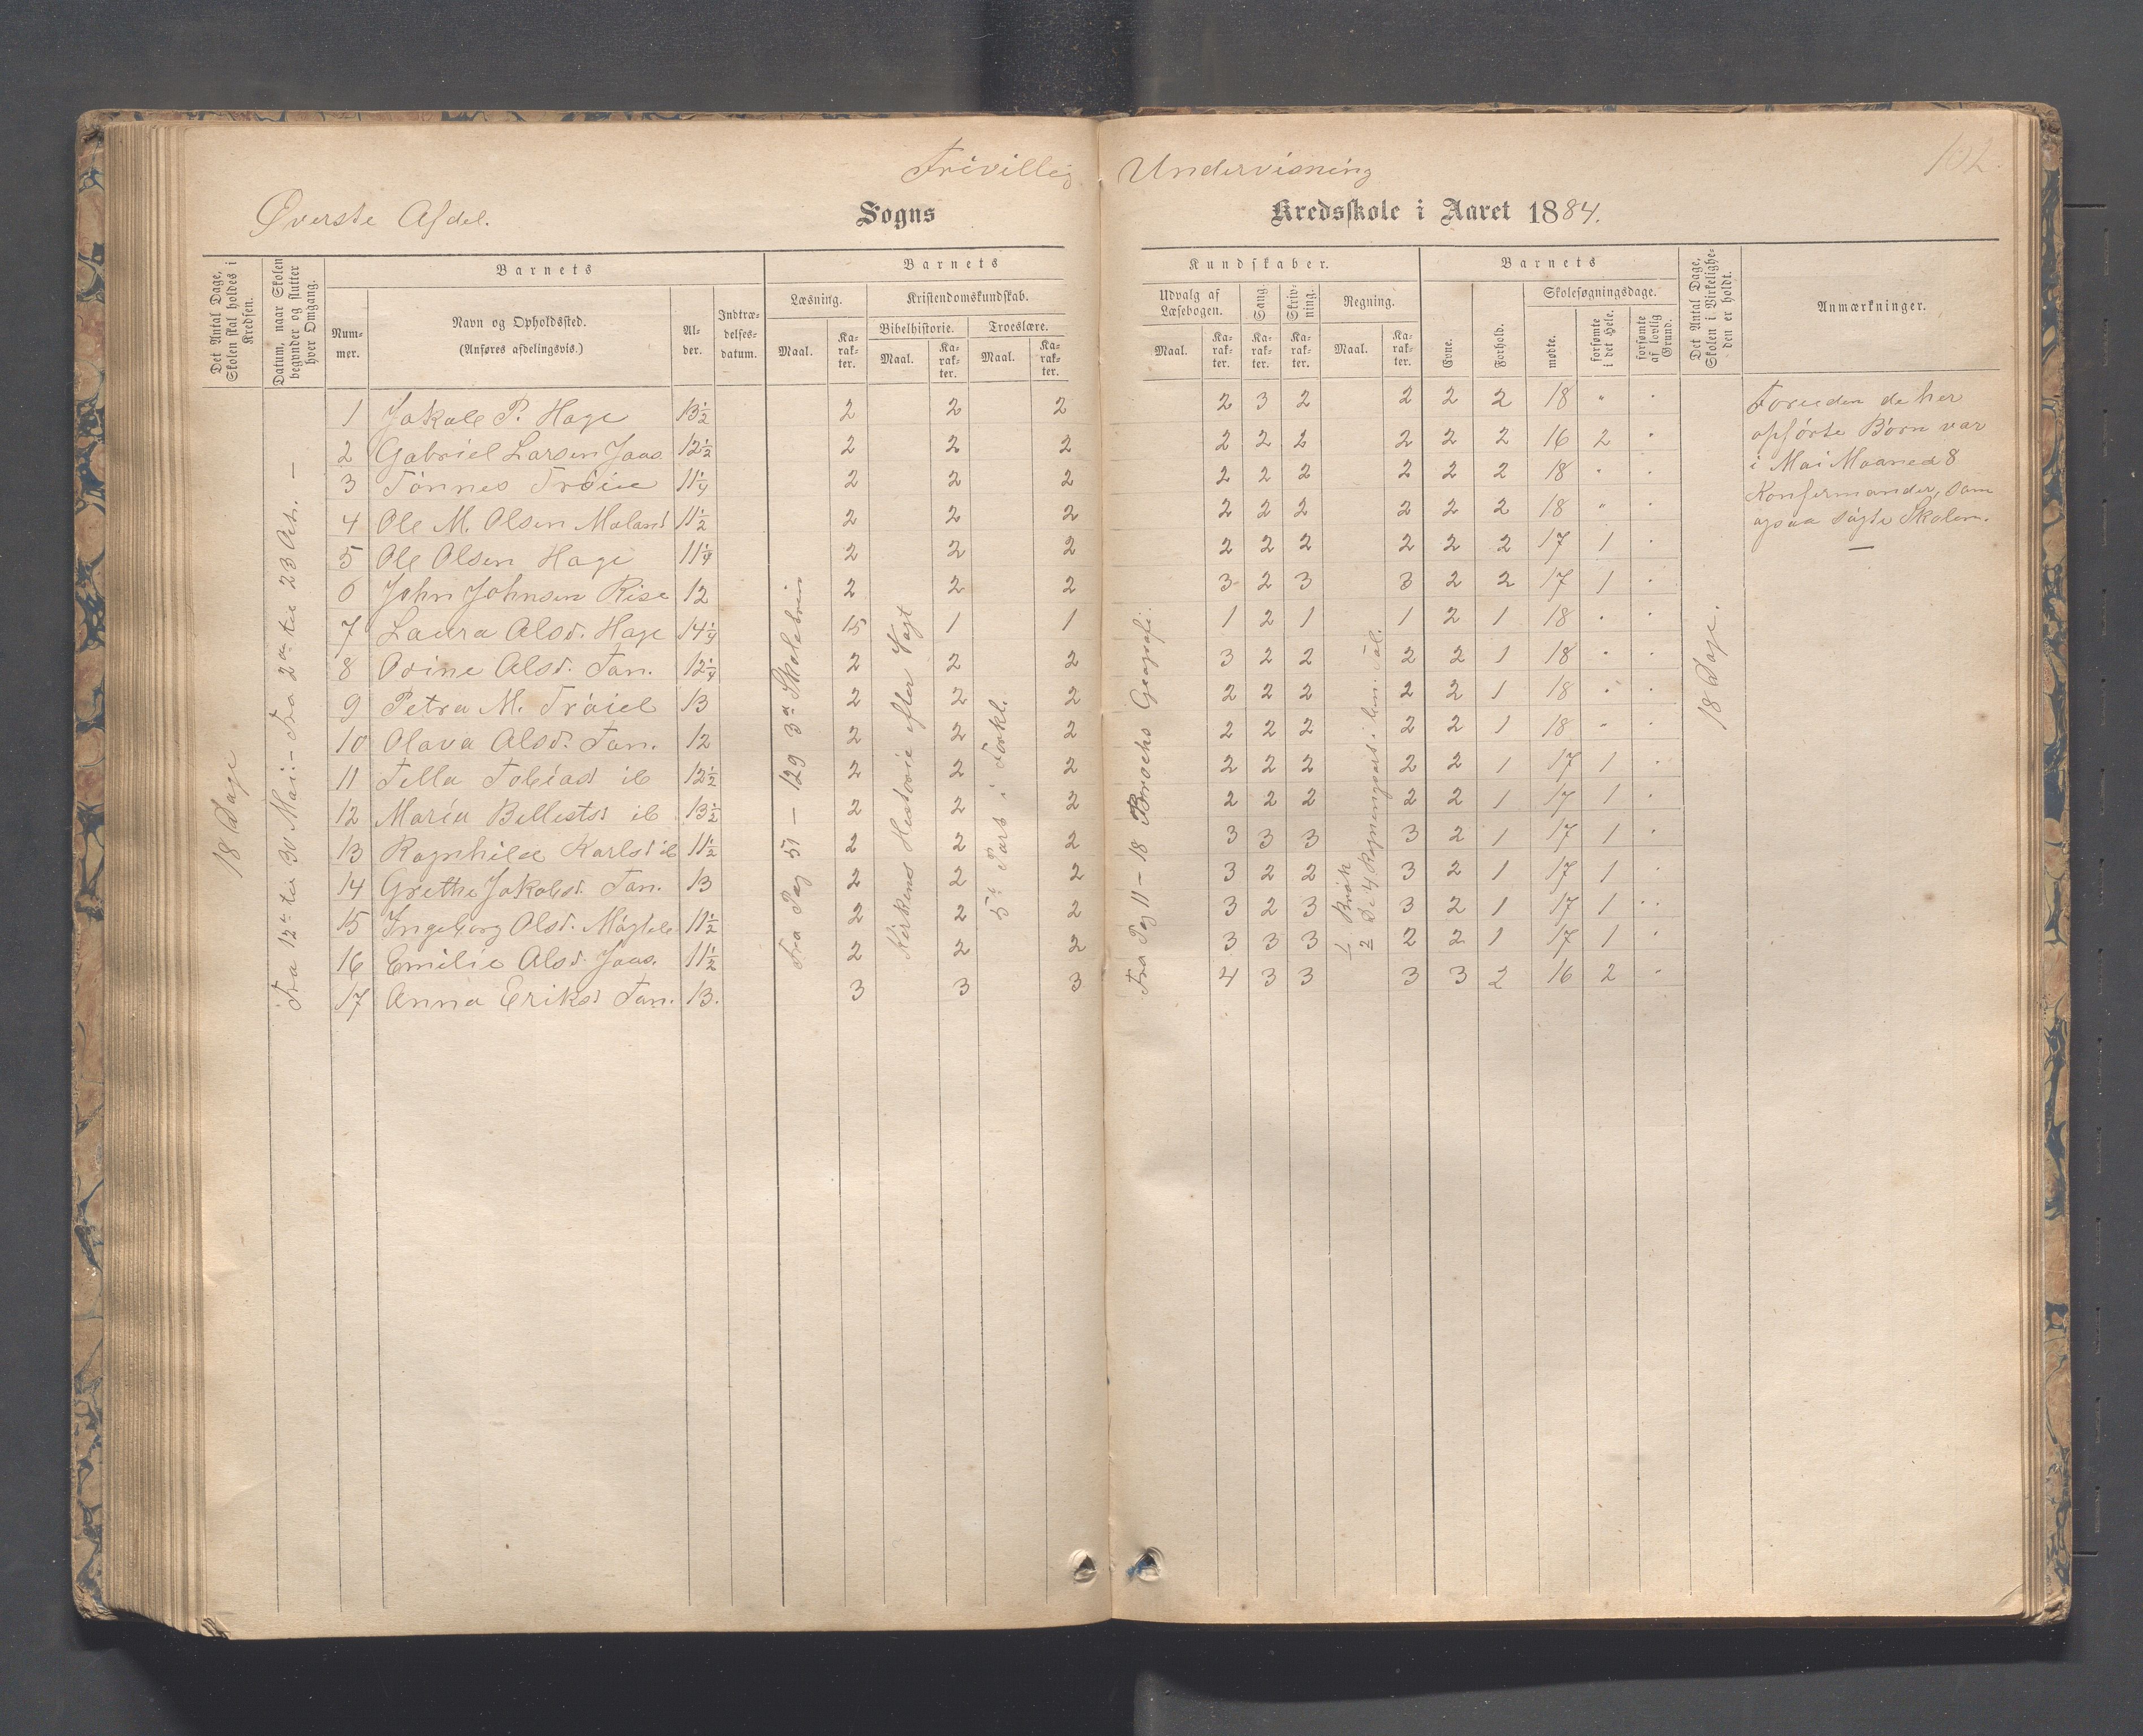 Frivillig Undervisning
102.
Øverste Afdel.
Sogns Kredsskole i Aaret 1884.
Det Antal Dage, Skolen skal holdes i Kredsen.
Datum, naar Skolen begynder og slutter hver Omgang.
Barnets
Nummer.
Navn og Opholdssted. (Anføres afdelingsvis.)
Alder.
Indtrædelsesdatum.
Barnets Kundskaber.
Læsning.
Maal.
Karakter.
Kristendomskundskab.
Bibelhistorie.
Maal.
Karakter.
Troeslære.
Maal.
Karakter.
Udvalg af Læsebogen.
Maal.
Karakter.
Sang.
Karakter.
Skrivning.
Karakter.
Regning.
Maal.
Karakter.
Barnets
Evne.
Forhold.
Skolesøgningsdage.
mødte.
forsømte i det Hele.
forsømte af lovlig Grund.
Det Antal Dage, Skolen i Virkeligheden er holdt.
Anmærkninger.
18 Dage
Fra 12te til 30 Mai. – Fra 2den til 23 —
Fra Pag 51 – 129 3die Skolebrin
Kirkens Historie efter Vogt
5te Part i Forkl.
Fra Pag 11 – 18 Geografi.
Brøk
De 4 Regningsart i Tal.
18 Dage.
1 Jakob P. Hage 13½ 2 2 2 2 3 2 2 2 2 18 " .
2 Gabriel Larsen Jaas 12½ 2 2 2 2 2 2 2 2 2 16 2 .
3 Tönnes Tröiel 11¼ 2 2 2 2 2 2 2 2 2 18 . .
4 Ole M. Olsen Moland 11½ 2 2 2 2 2 2 2 2 2 18 " .
5 Ole Olsen Hage 11¼ 2 2 2 2 2 2 2 2 2 17 1 .
6 John Johnsen Rise 12 2 2 2 3 2 3 3 2 2 17 1 .
7 Laura Olsd. Hage 14¼ 1,5 1 1 1 2 1 1 2 1 18 . .
8 Orine Olsd. Tan. 12¼ 2 2 2 3 2 2 2 2 1 18 . .
9 Petra M. Tröiel 13 2 2 2 2 2 2 2 2 1 18 . .
10 Olava Olsd. Tan. 12 2 2 2 2 2 2 2 2 1 18 . .
11 Tella Tobiasd ib 12½ 2 2 2 2 2 2 2 2 1 17 1 .
12 Maria ib 13½ 2 2 2 2 2 2 2 2 1 17 1 .
13 Ragnhild Karlsd ib 11½ 2 2 2 3 3 3 3 2 1 17 1 .
14 Grethe Jakobsd. Tan. 13 2 2 2 3 2 2 3 2 1 17 1 .
15 Ingeborg Olsd. 11½ 2 2 2 3 2 3 3 2 1 17 1 . .
16 Emilie Olsd. Jaas. 11½ 2 2 2 3 3 3 2 2 1 17 1 .
17 Anna Eriksd Tan. 13. 3 3 3 4 3 3 3 3 2 16 2 .
Foruden de her
opførte Børn var
i Mai Maaned 8
Konfirmander, som
ogsaa søgte Skolen.
—